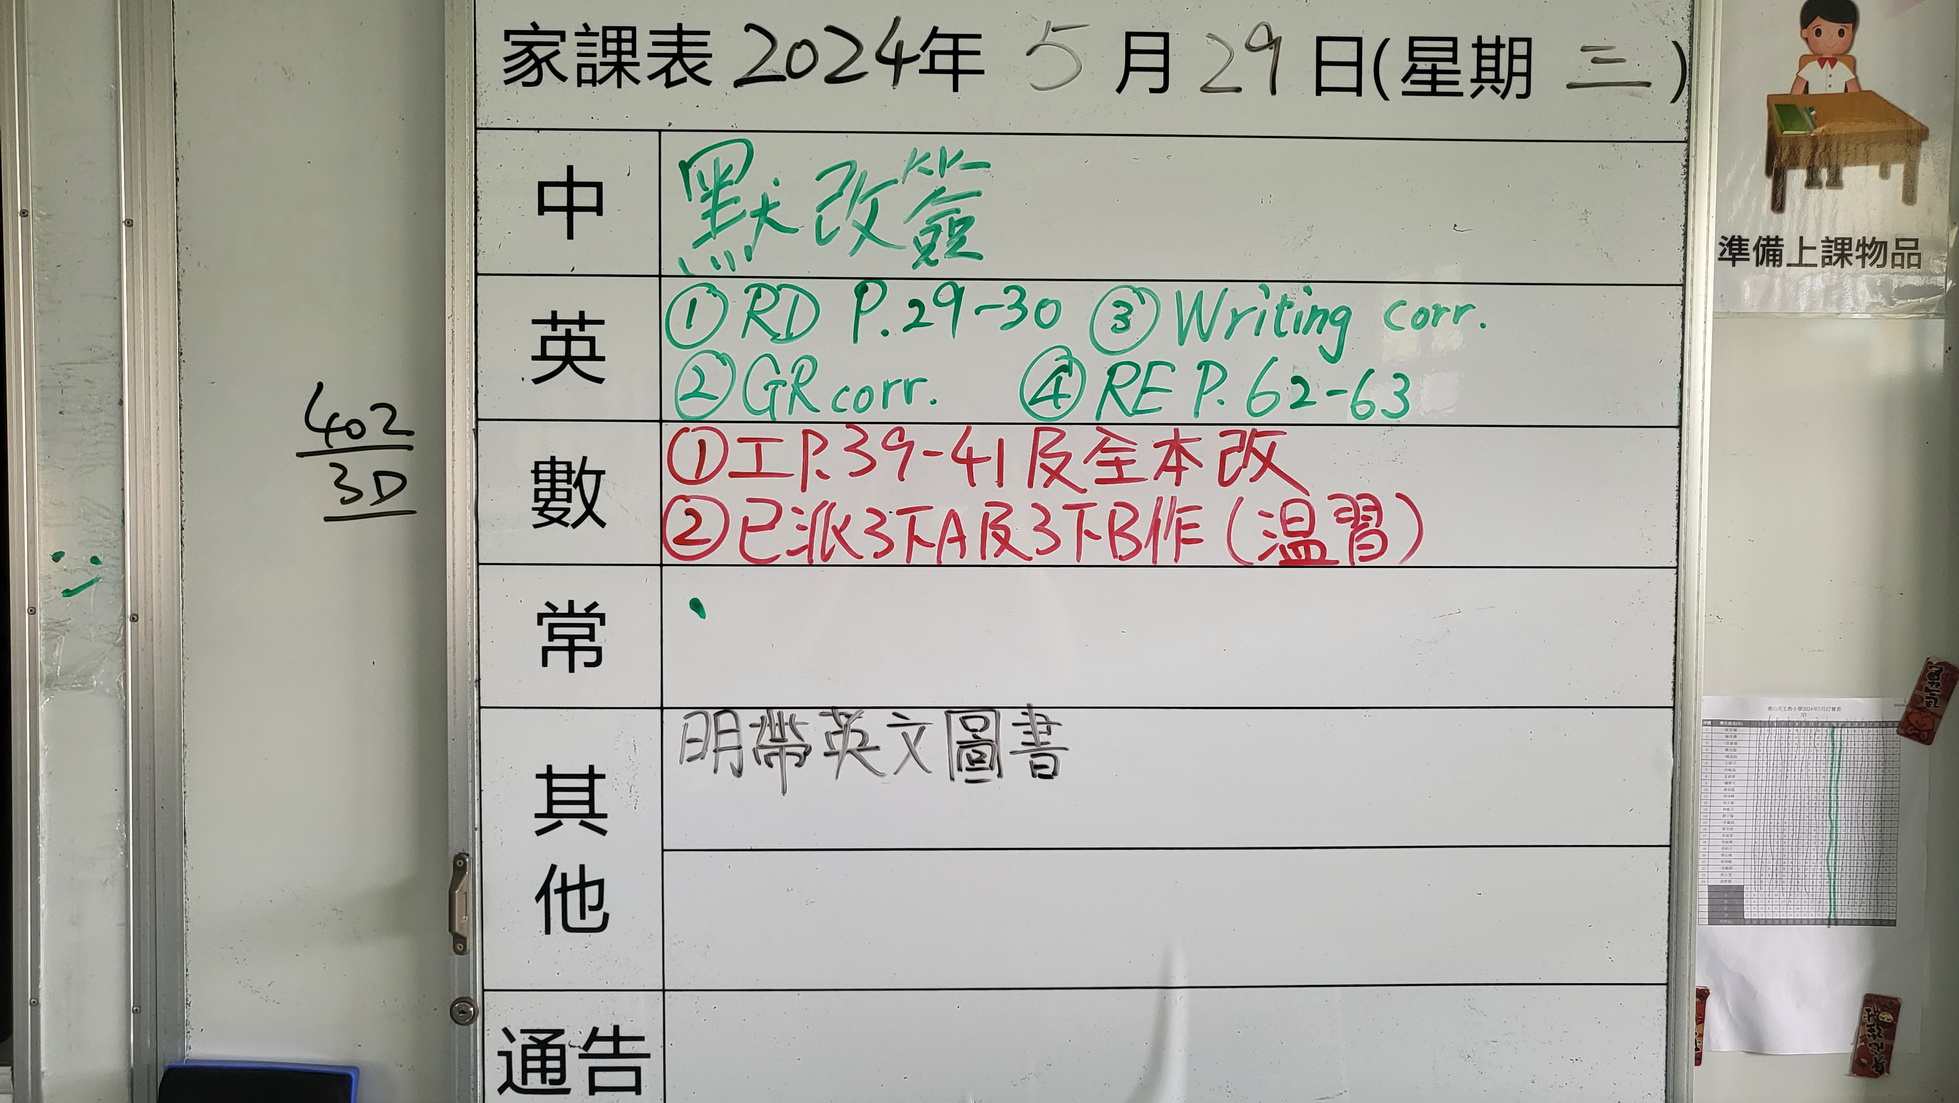 家課表 2024年 5月29日(星期 三)
中
默改簽
英
①RD P.29-30 ③Writing corr.
②GR corr. ④RE P.62-63
數
①工P.39-41及全本改
②已派3下A及3下B作(温習)
常
其他
明帶英文圖書
通告
402
3D
準備上課物品